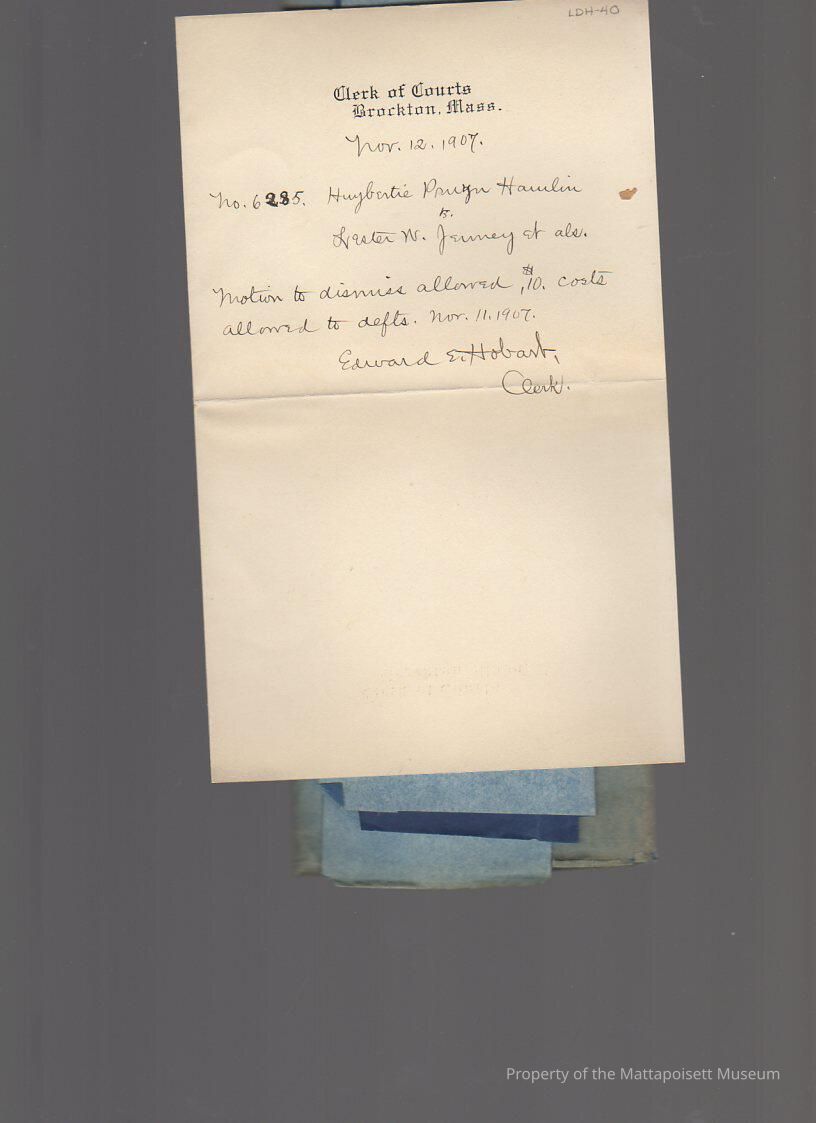 LDH-40
Clerk of Courts
Brockton, Mass.
Nov. 12. 1907.
No. 6285. Huybertie Pruyn Hamlin
v.
Lester W. Jenney et als.
Motion to dismiss allowed, $10. costs
allowed to defts. Nov. 11. 1907.
Edward E. Hobart,
Clerk.
Property of the Mattapoisett Museum